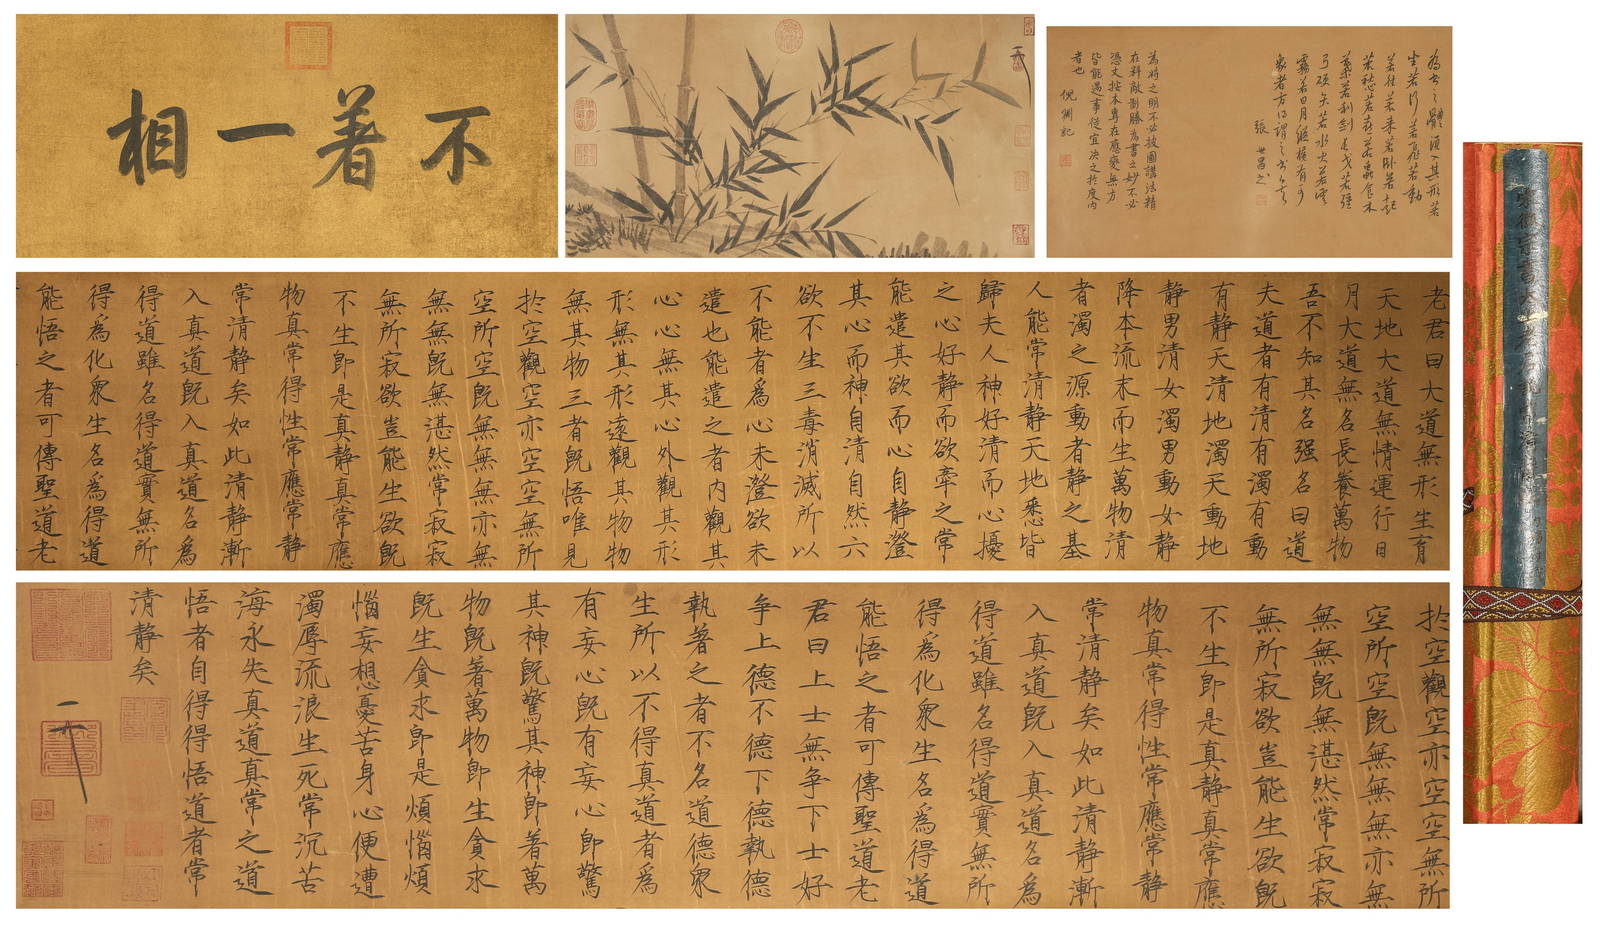 不著一相
為書之體須入其形若
坐若行若飛若動
若往若來若臥若起
若愁若喜若蟲食木
葉若利劍長戈若强
弓硬矢若水火若雲
霧若日月縱橫有可
象者方得謂之書矣
張世昌書
為將之明不必披圖講法精
在料敵制勝為書之妙不必
憑文按本專在應變無方
皆能遇事從宜決之於度内
者也 倪淵記
老君曰大道無形生育
天地大道無情運行日
月大道無名長養萬物
吾不知其名强名曰道
夫道者有清有濁有動
有静天清地濁天動地
静男清女濁男動女静
降本流末而生萬物清
者濁之源動者静之基
人能常清静天地悉皆
歸夫人神好清而心擾
之心好静而欲牽之常
能遣其欲而心自静澄
其心而神自清自然六
欲不生三毒消滅所以
不能者爲心未澄欲未
遣也能遣之者内觀其
心心無其心外觀其形
形無其形遠觀其物物
無其物三者既悟唯見
於空觀空亦空空無所
空所空既無無無亦無
無無既無湛然常寂寂
無所寂欲豈能生欲既
不生即是真静真常應
物真常得性常應常静
常清静矣如此清静漸
入真道既入真道名爲
得道雖名得道實無所
得爲化衆生名爲得道
能悟之者可傳聖道老
於空觀空亦空空無所
空所空既無無無亦無
無無既無湛然常寂寂
無所寂欲豈能生欲既
不生即是真静真常應
物真常得性常應常静
常清静矣如此清静漸
入真道既入真道名爲
得道雖名得道實無所
得爲化衆生名爲得道
能悟之者可傳聖道老
君曰上士無争下士好
争上德不德下德執德
執著之者不名道德衆
生所以不得真道者爲
有妄心既有妄心即驚
其神既驚其神即著萬
物既著萬物即生貪求
既生貪求即是煩惱煩
惱妄想憂苦身心便遭
濁辱流浪生死常沉苦
海永失真道真常之道
悟者自得得悟道者常
清静矣
宋徽宗書太上老君